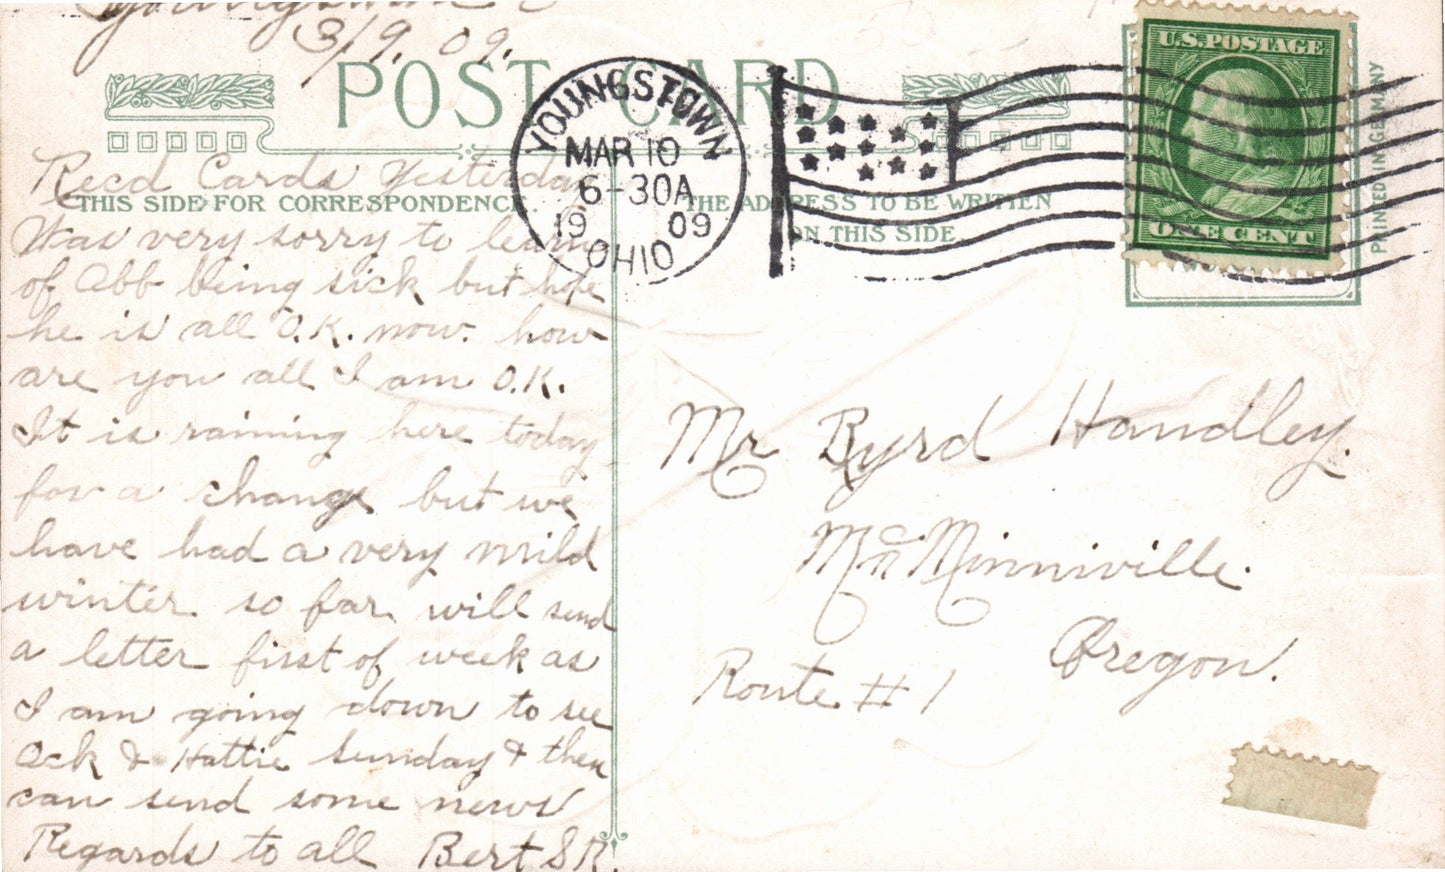 Youngstown O
3/9. 09.
POST CARD
THIS SIDE FOR CORRESPONDENCE.
THE ADDRESS TO BE WRITTEN
ON THIS SIDE.
YOUNGSTOWN
MAR 10
6-30A
19 09
OHIO
U.S. POSTAGE
ONE CENT
PRINTED IN GERMANY
Recd Cards Yesterday
Was very sorry to learn
of Abb being sick but hope
he is all O.K. now. how
are you all I am O.K.
It is raining here today
for a change but we
have had a very mild
winter so far will send
a letter first of week as
I am going down to see
Ack & Hattie Sunday & then
can send some news
Regards to all Bert S R.
Mr Byrd Handley.
Mc Minniville.
Oregon.
Route # 1